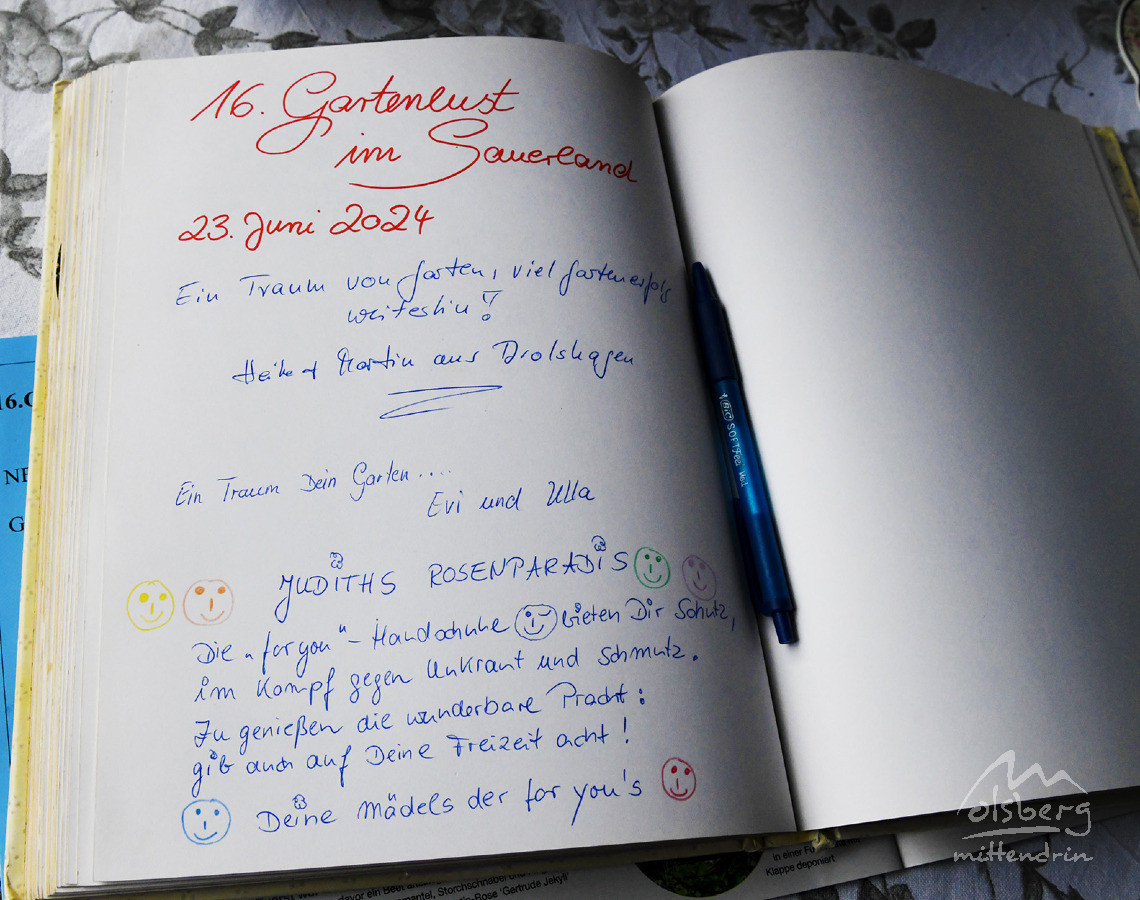 16. Gartenlust
im Sauerland
23. Juni 2024
Ein Traum von Garten, viel Gartenerfolg
weiterhin!
Heike + Martin aus Drolshagen
Ein Traum Dein Garten....
Evi und Ulla
JUDITHS ROSENPARADIS
Die „for you“-Handschuhe bieten Dir Schutz,
im Kampf gegen Unkraut und Schmutz.
Zu genießen die wunderbare Pracht:
gib auch auf Deine Freizeit acht!
Deine Mädels der for you's
BIC SOFTFeel
16.G
NE
G
davor ein Beet
mantel, Storchschnabel
-Rose 'Gertrude Jekyll'
in einer
Klappe deponiert
olsberg
mittendrin